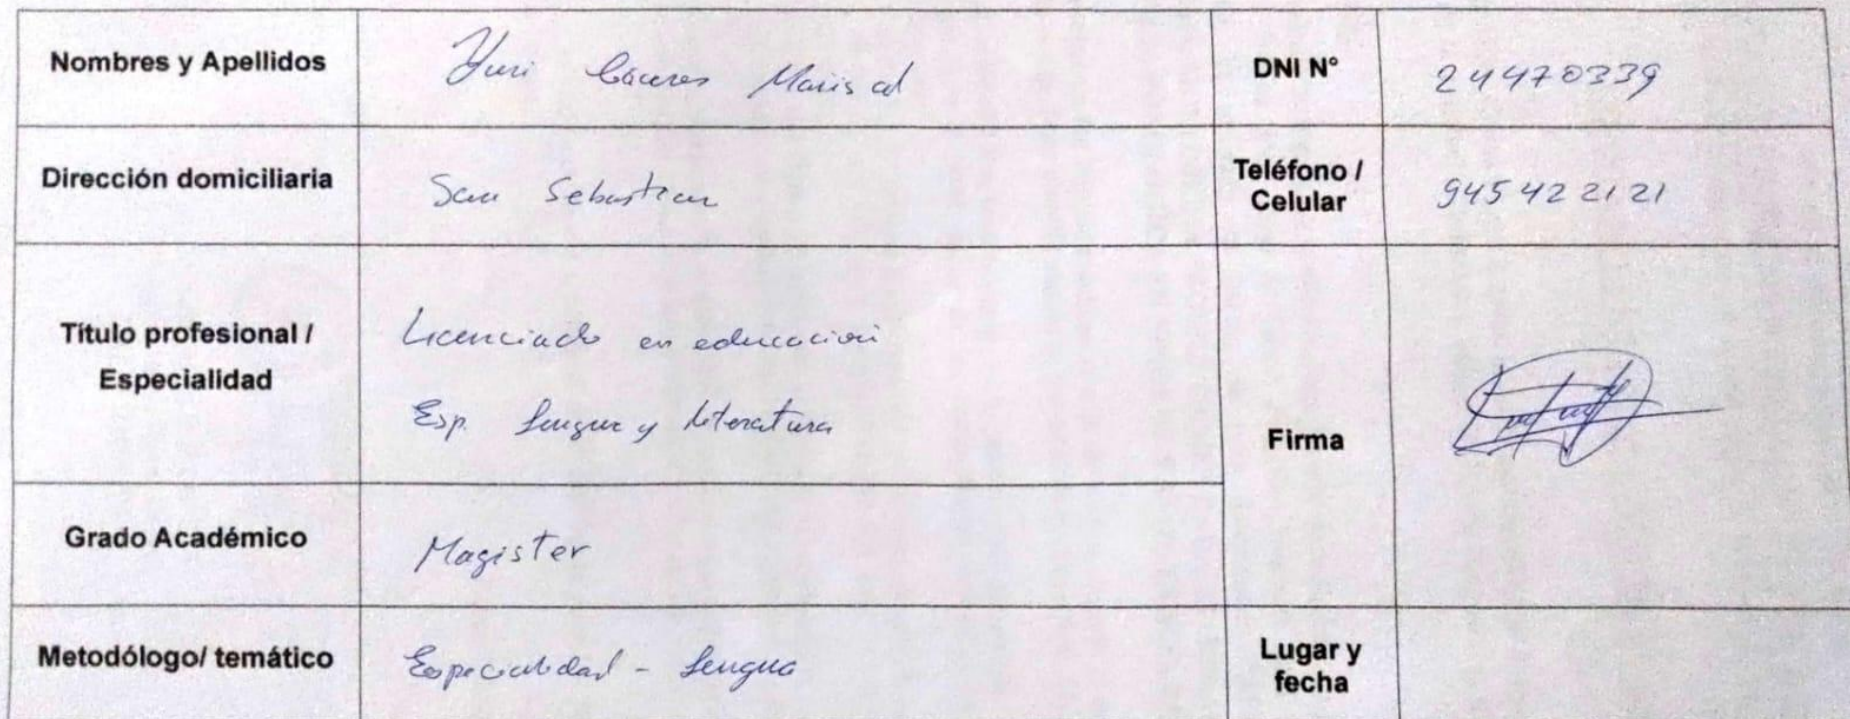 Nombres y Apellidos Yuri Cáceres Mariscal DNI N° 24470339
Dirección domiciliaria San Sebastian Teléfono / Celular 945 42 21 21
Título profesional / Especialidad
Licenciado en educación
Esp. Lengua y Literatura
Firma
Grado Académico Magister
Metodólogo/ temático Especialidad - Lengua Lugar y fecha